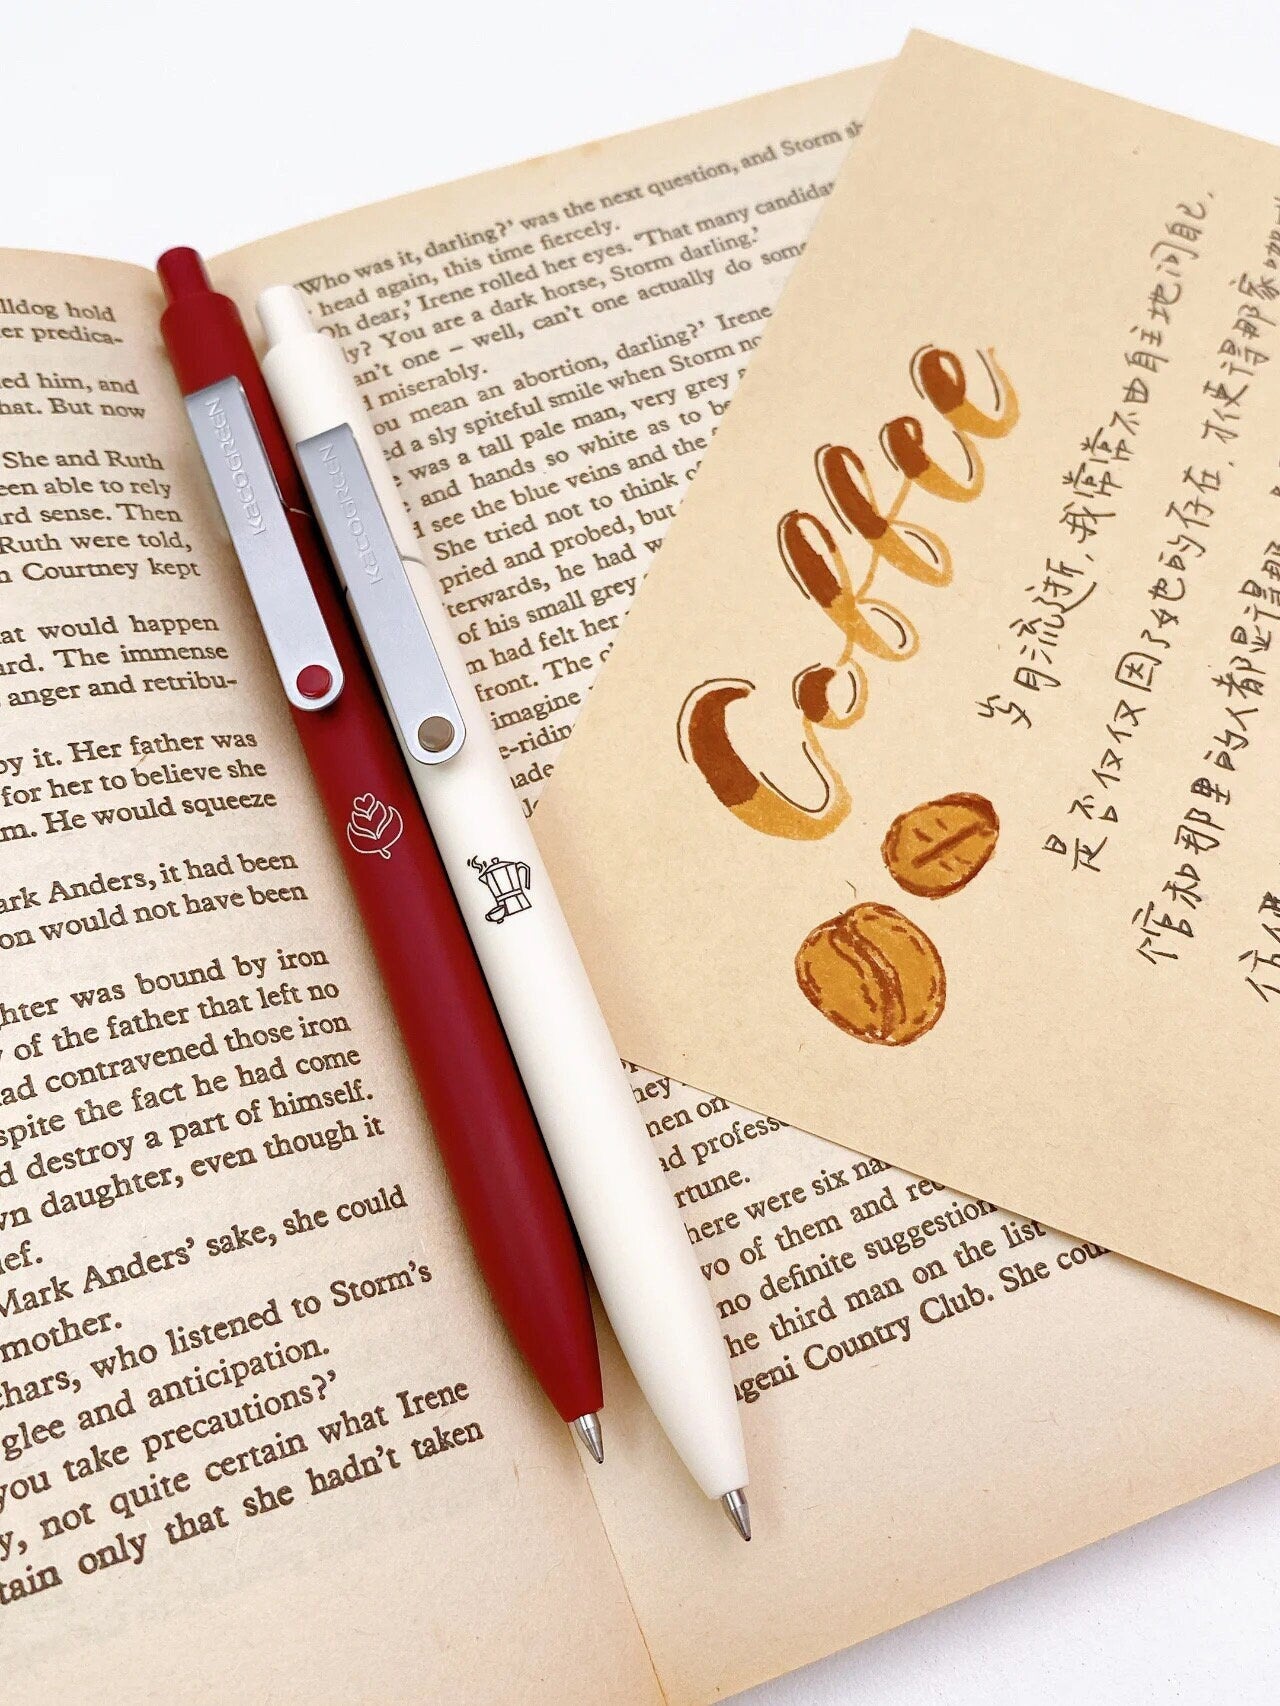 lldog hold
er predica-
ed him, and
hat. But now
She and Ruth
een able to rely
rd sense. Then
Ruth were told,
n Courtney kept
at would happen
ard. The immense
anger and retribu-
by it. Her father was
for her to believe she
m. He would squeeze
ark Anders, it had been
on would not have been
ghter was bound by iron
of the father that left no
ad contravened those iron
spite the fact he had come
d destroy a part of himself.
wn daughter, even though it
ief.
Mark Anders' sake, she could
mother.
chars, who listened to Storm's
glee and anticipation.
you take precautions?'
y, not quite certain what Irene
tain only that she hadn't taken
'Who was it, darling?' was the next question, and Storm sh
head again, this time fiercely.
Oh dear,' Irene rolled her eyes. 'That many candida
ly? You are a dark horse, Storm darling.'
an't one – well, can't one actually do som
d miserably.
ou mean an abortion, darling?' Irene
ed a sly spiteful smile when Storm no
was a tall pale man, very grey a
and hands so white as to be
d see the blue veins and the
She tried not to think o
pried and probed, but
terwards, he had w
of his small grey
m had felt her
front. The
imagine
e-riding
made
hey
men on
ad profess
rtune.
here were six na
wo of them and rec
no definite suggestion
he third man on the list
ngeni Country Club. She cou
KACOGREEN
KACOGREEN
Coffee
岁月流逝,我常常不由自主地问自己,
是否仅仅因了她的存在,才使得那家咖
馆和那里的人都是